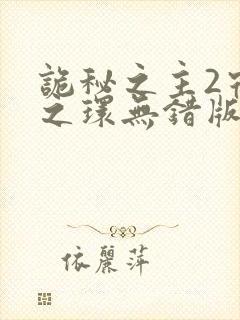 詭秘之主2
之環無錯版
依麗萍